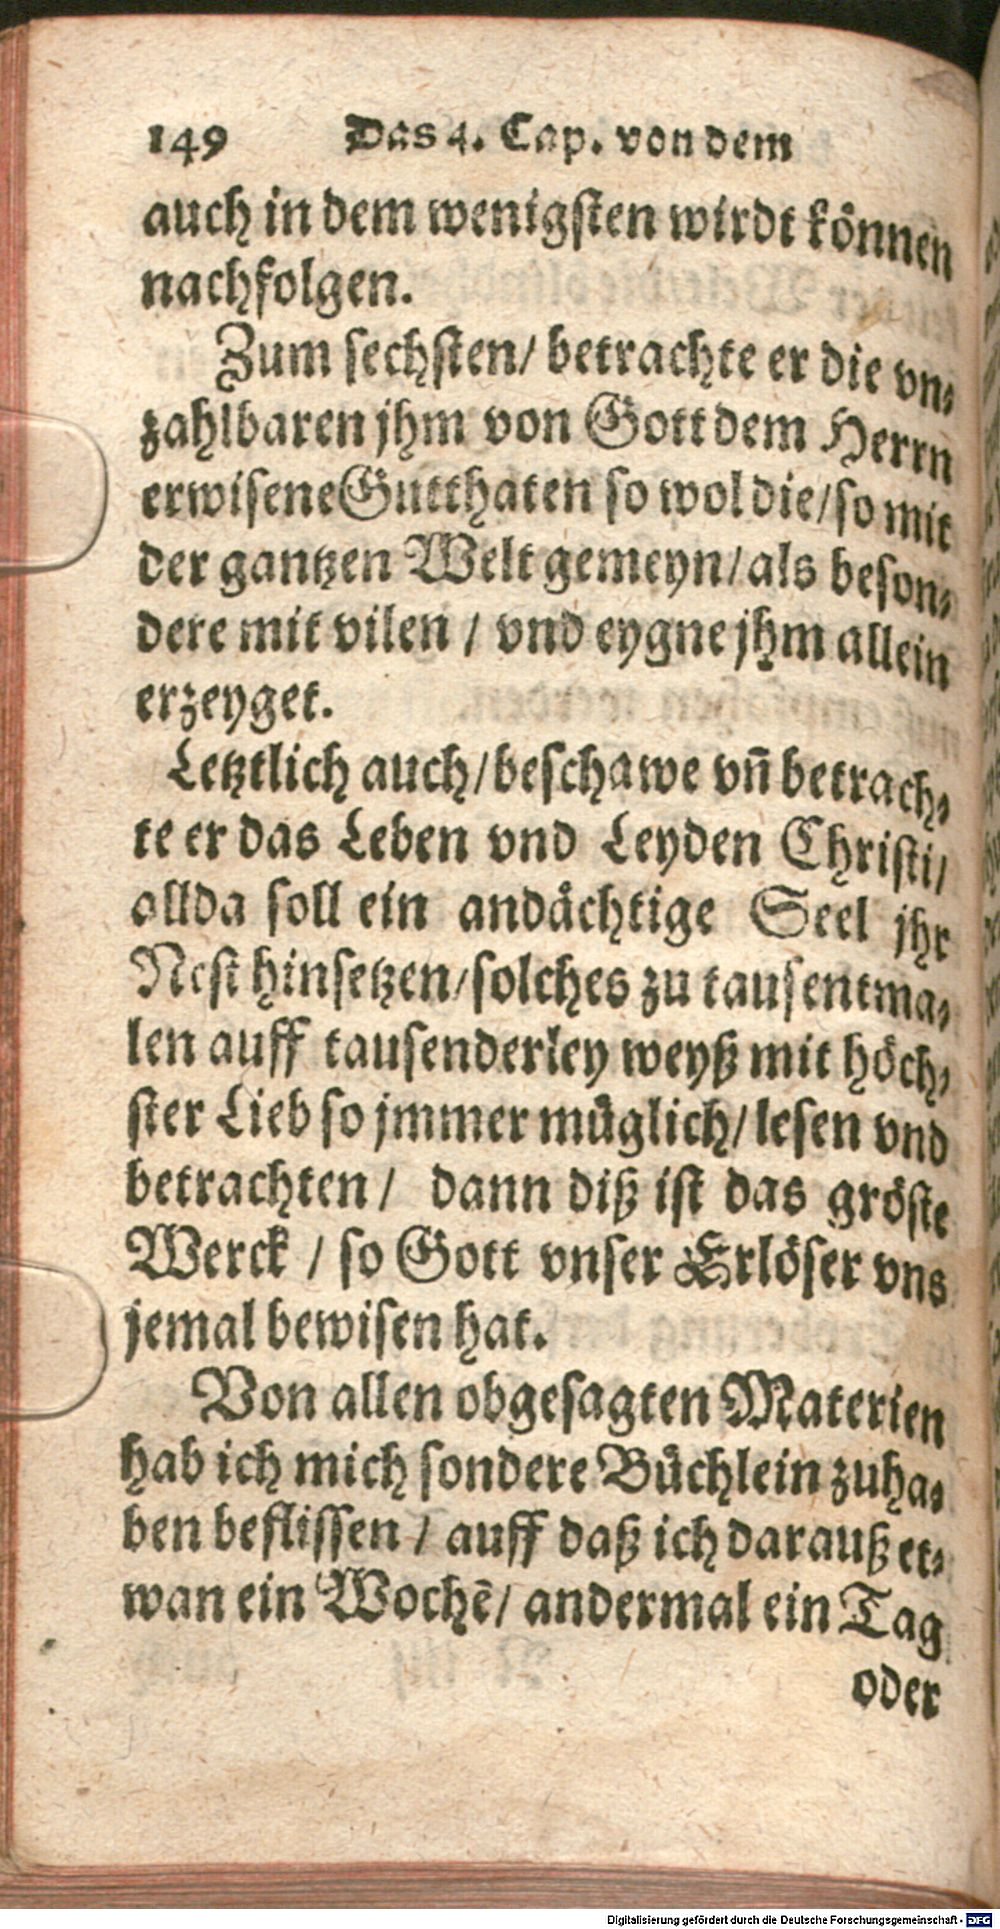 149 Das 4. Cap. von dem
auch in dem wenigsten wirdt können
nachfolgen.
Zum sechsten/ betrachte er die vn⸗
zahlbaren jhm von Gott dem Herrn
erwisene Gutthaten so wol die/ so mit
der gantzen Welt gemeyn/ als beson⸗
dere mit vilen / vnd eygne jhm allein
erzeyget.
Letztlich auch/ beschawe vn̄ betrach⸗
te er das Leben vnd Leyden Christi/
allda soll ein andächtige Seel jhr
Nest hinsetzen/ solches zu tausentma⸗
len auff tausenderley weyß mit höch⸗
ster Lieb so jmmer müglich/ lesen vnd
betrachten / dann diß ist das gröste
Werck / so Gott vnser Erlöser vns
jemal bewisen hat.
Von allen obgesagten Materien
hab ich mich sondere Büchlein zuha⸗
ben beflissen / auff daß ich darauß et⸗
wan ein Wochē/ andermal ein Tag
oder
Digitalisierung gefördert durch die Deutsche Forschungsgemeinschaft - DFG